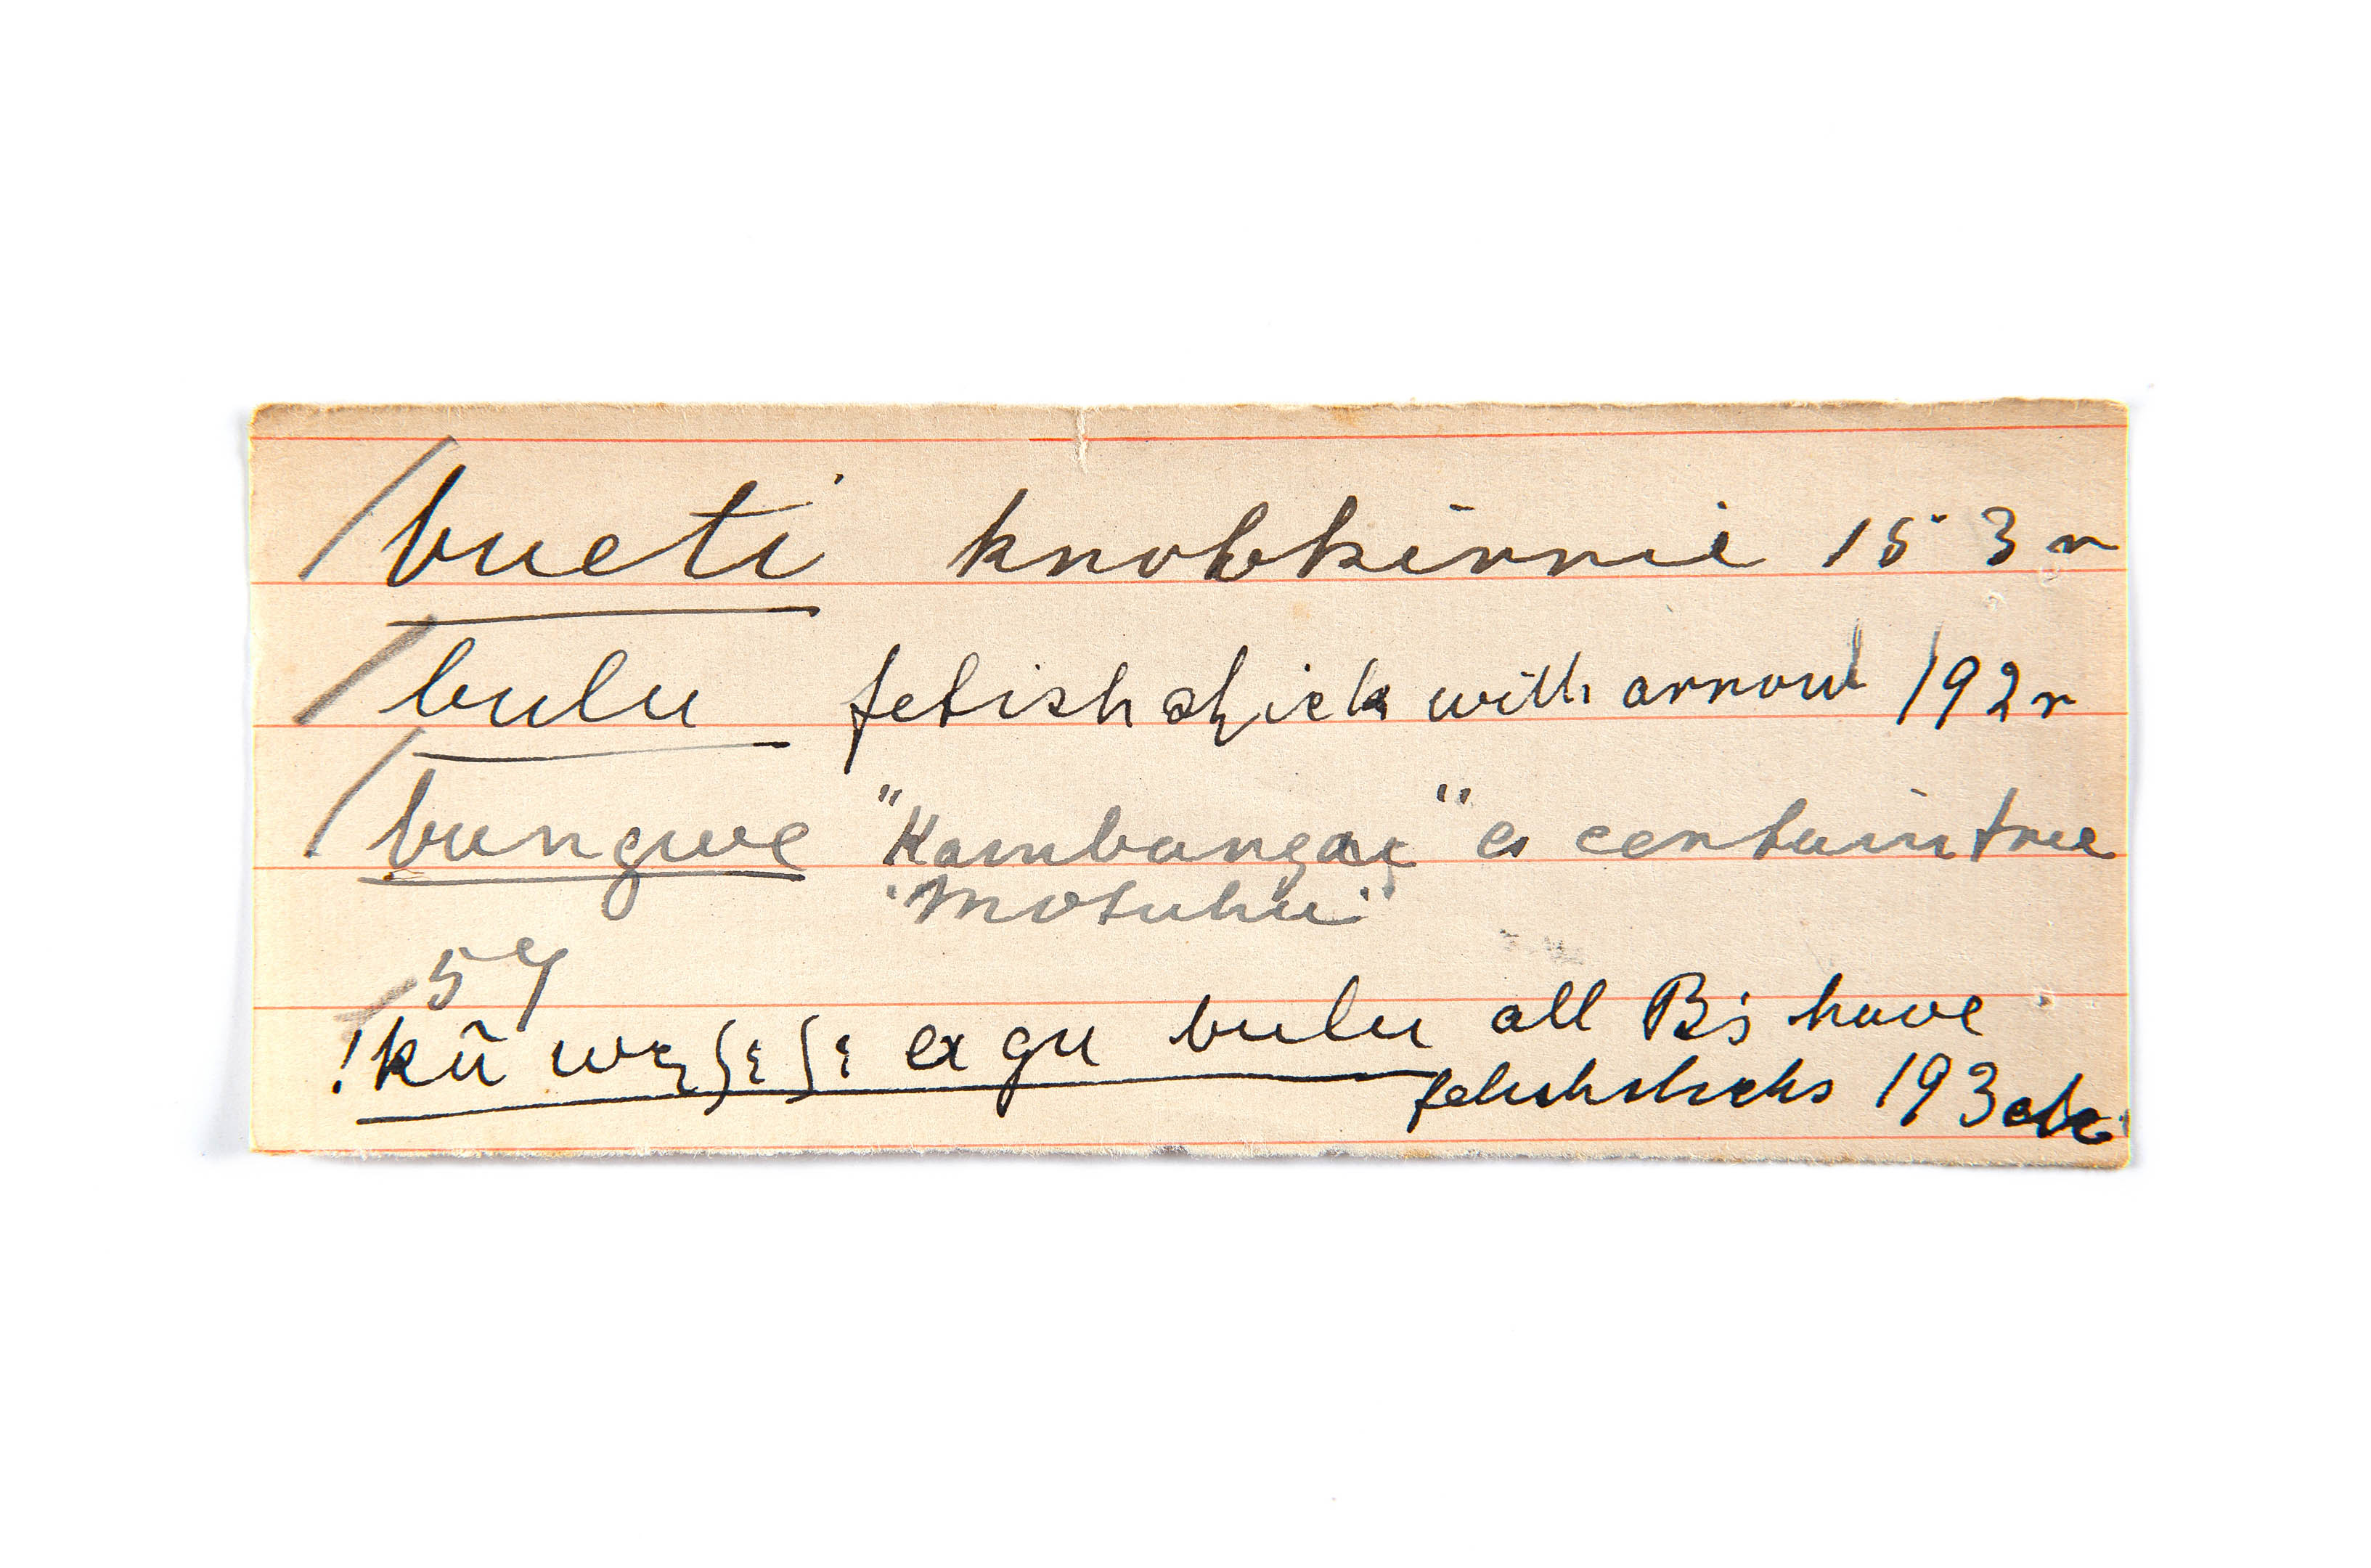 /bueti knobkirrie 153 r
/bulu fetish stick with arrow 192 r
/bungwe "Kambangaę" a certain tree
"Motuhu"
57
!kũ węʃɛʃɛ a gu bulu all B's have
fetishsticks 193